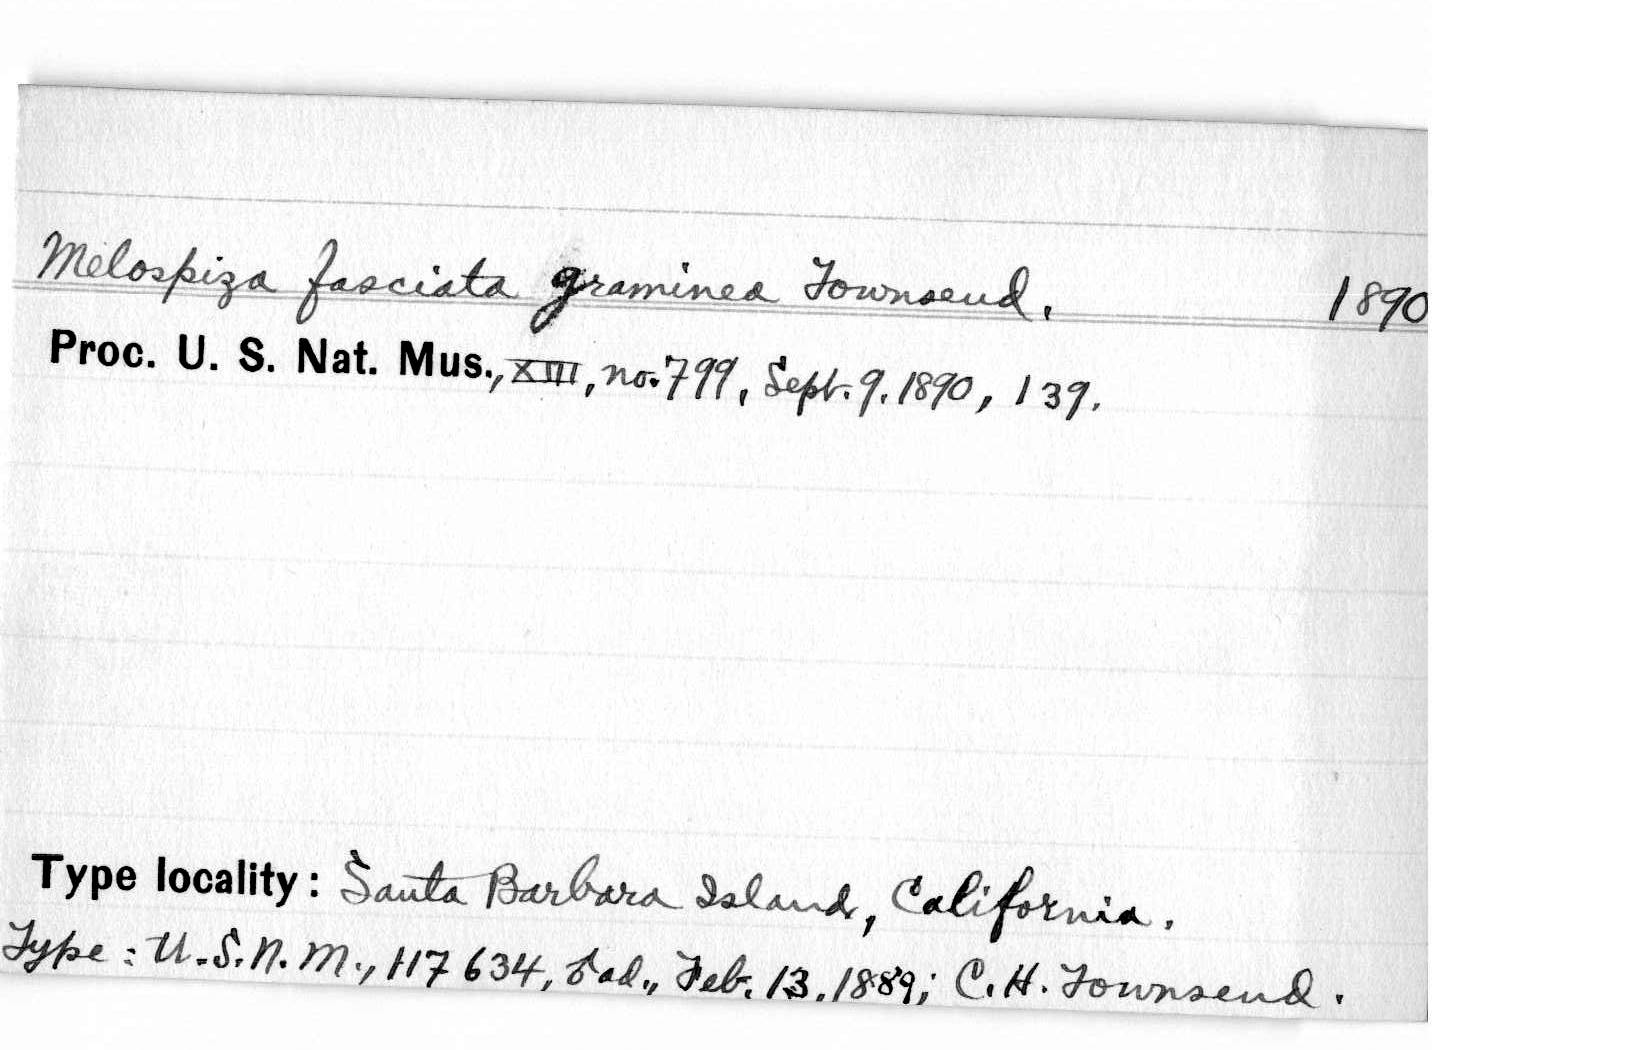 Melospiza fasciata graminea Townsend. 1890
Proc. U. S. Nat. Mus., XIII, no. 799, Sept. 9. 1890, 139.
Type locality: Santa Barbara Island, California.
Type: U.S.N.M., 117634, ♂ ad., Feb. 13, 1889; C. H. Townsend.